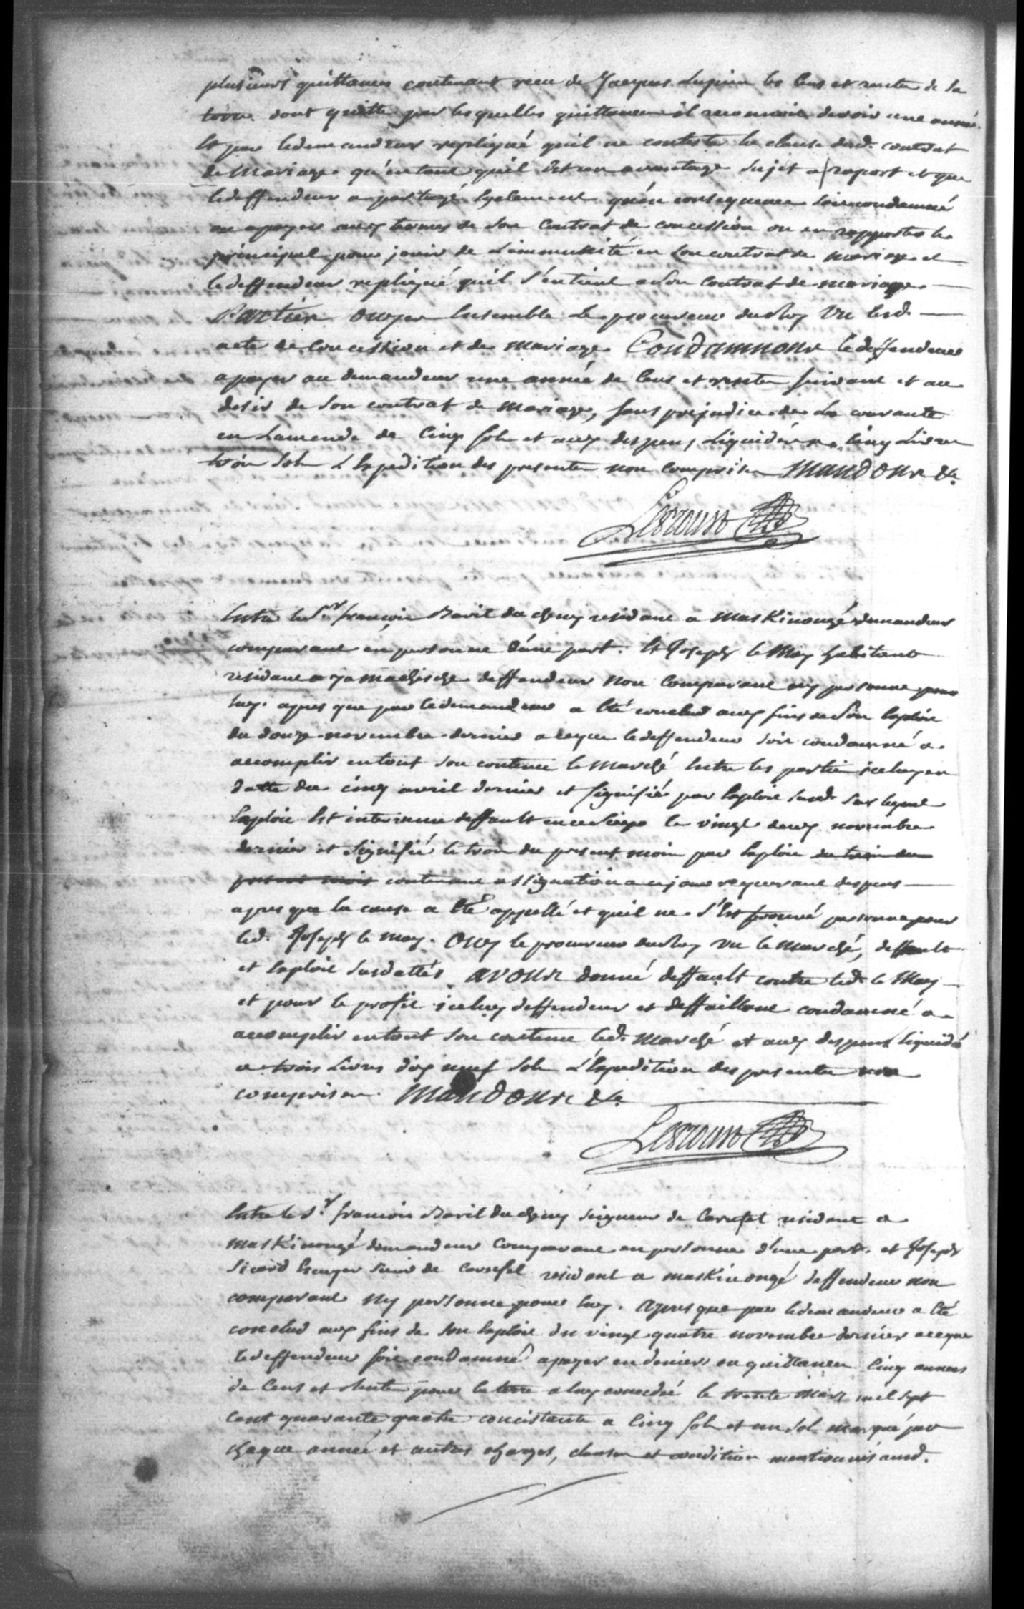 plusieurs quittances contenant receu de Jacques Lupien les Cens et rentes de la
terre dont quitte par lesquelles quittances il reconnoit devoir une année
Et par ledemandeur repliqué quil ne conteste la clause dud. contrat
de Mariage qu'en tant quil Est un avantage Sujet a raport et que
ledeffendeur a partagé Egalement quén consequence Soit condamné
au apayer aux termes de Son Contrat de concession ou en rapporter le
principal pour jouir de L'immunité en Son contrat de mariage et
ledeffendeur repliqué quil S'entient a Son Contrat de mariage —
Parties ouyes Ensemble Le procureur du Roy Vu lesd. —
actes de Concession et de mariage Condamnons ledeffendeur
a payer au demandeur une année de Cens et rentes Suivant et au
desir de Son contrat de Mariage, Sans prejudice de La courante
en Lamende de Cinq Sols et aux depens, Liquidés a Cinq Livres
trois Sols L'Expedition des presentes non comprise Mandons &c.
Lescouso
Entre le Sr. françois Baril duchény residant a Maskinongé demandeur
comparant en personne d'une part. Et Joseph le May habitant
residant a yamachiche deffendeur Non Comparant ny personne pour
luy. apres que par ledemandeur a Eté conclud aux fins de Son Exploit
du douze novembre dernier a ceque ledeffendeur Soit condamné a
accomplir entout Son contenu le Marché Entre les parties
datté du cinq avril dernier et Signifié par Exploit Susd. Sur lequel
Exploit Est intervenu deffault en ce Siege le vingt deux novembre
dernier et Signifié le trois du present mois par Exploit du trois du
present mois contenant assignation a cejour requerant depens —
apres que la cause a Eté appellé et quil ne S'Est trouvé personne pour
led. Joseph le may. Ouy le procureur du Roy vu le Marché, deffault
et Exploit Susdattés, avons donné deffault contre led. le May —
et pour le profit iceluy deffendeur et deffaillant condamné a
accomplir entout Son contenu led. Marché et aux depens Liquidé
a trois Livres dix neuf Sols L'Expedition des presentes non
comprise. Mandons &c.
Lescouso
Entre le Sr. francois Baril duchény Seigneur de Carufel residant a
Maskinongé demandeur Comparant en personne d'une part. et Joseph
Sicard Ecuyer Sieur de Carufel residant a maskinongé deffendeur non
comparant Ny personne pour luy. Apres que par ledemandeur a Eté
conclud aux fins de Son Exploit du vingt quatre novembre dernier aceque
ledeffendeur Soit condamné apayer en deniers ou quittances Cinq années
de Cens et Rente pour la terre a luy concedée le trente Mars mil Sept
Cent quarante quatre concistante a Cinq Sols et un Sol marqué par
chaque année et autres charges, clauses et condition mentionnés aud.